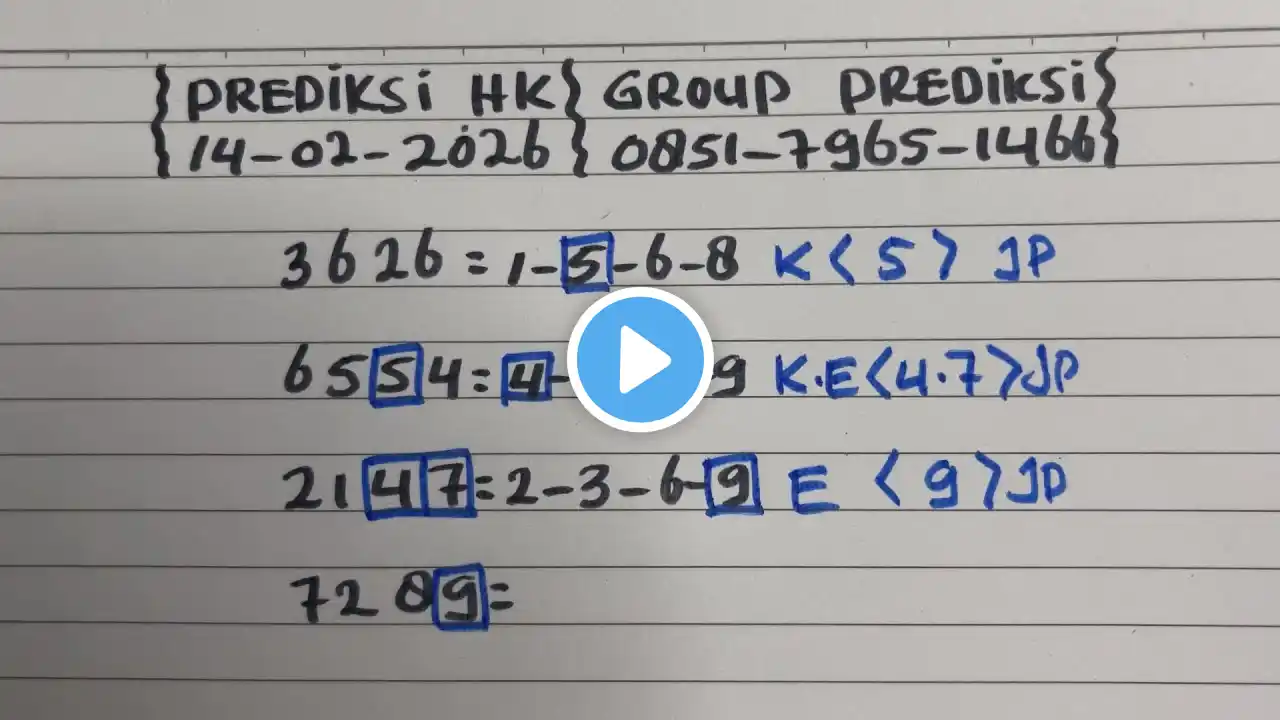 {PREDIKSI HK} GROUP PREDIKSI}
{14-02-2026} 0851-7965-1466}
3626 = 1-5-6-8 K<5> JP
6554 = 4- -9 K.E<4.7>JP
2147=2-3-6-9 E <9>JP
7289=